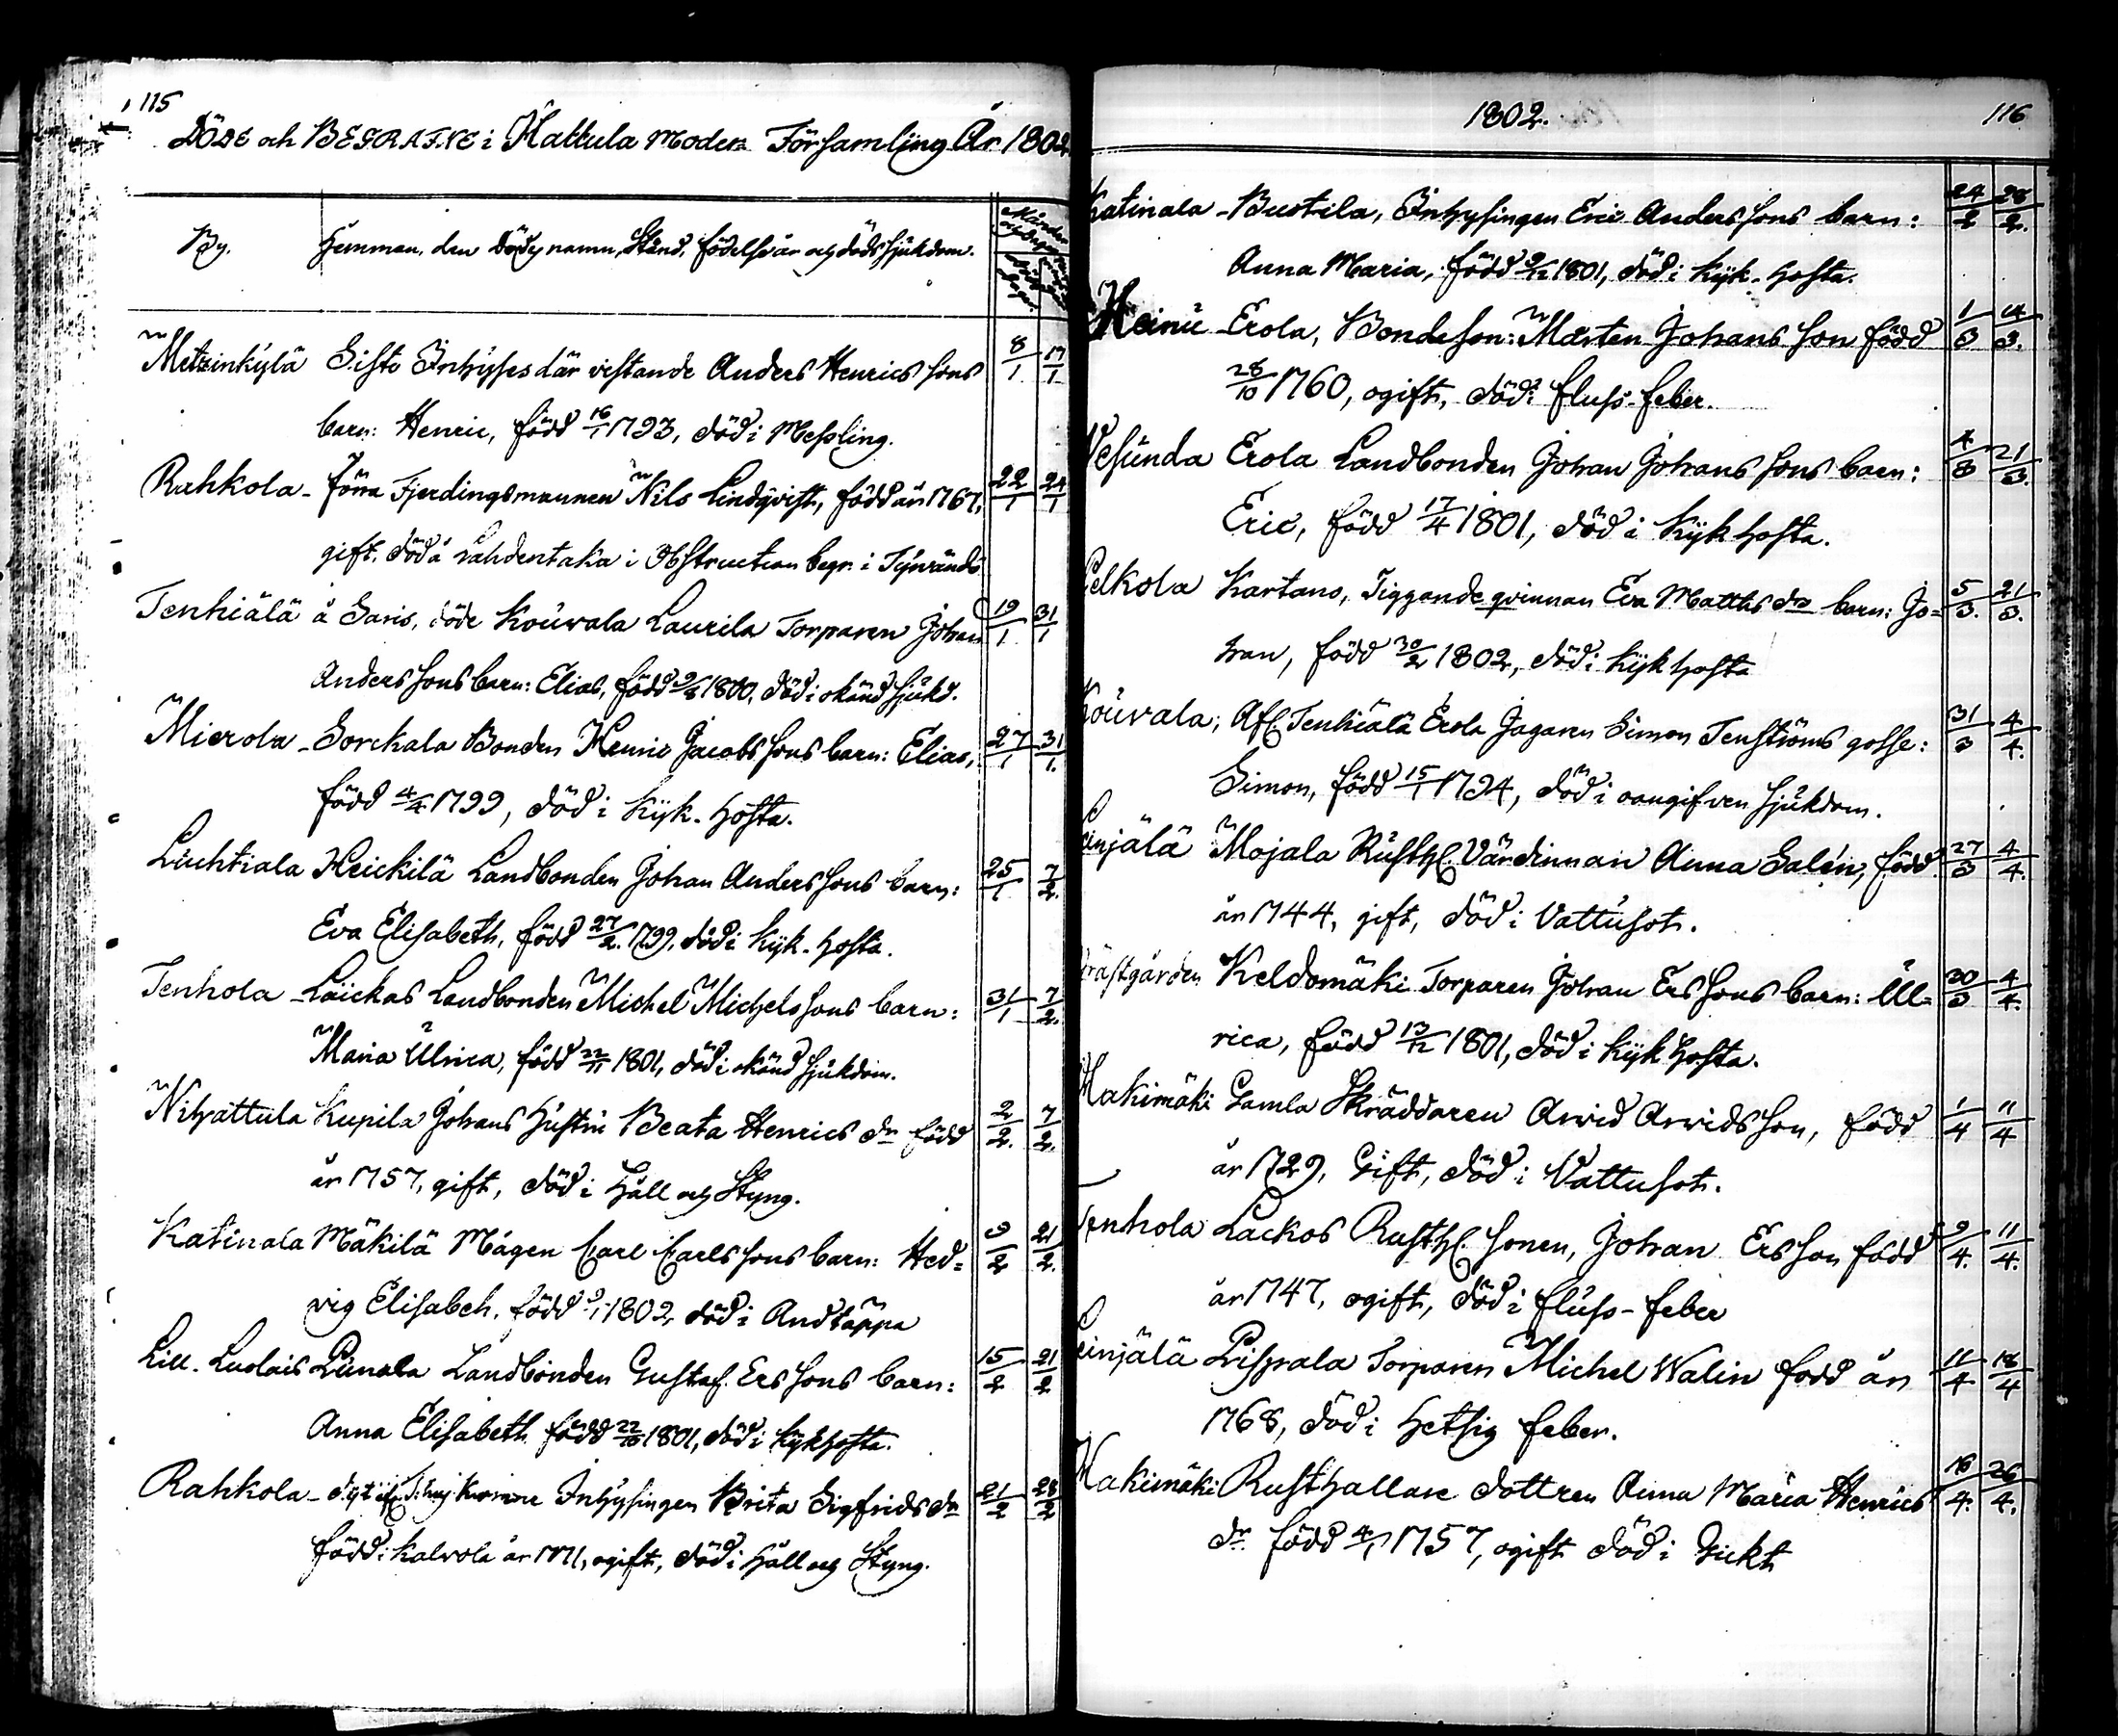 115
DÖDE och BEGRAFNE i Hattula Moder Församling År 1802
By. Hemman, den Dödes namn, Stånd, födelseår och dödssjukdom.
Metzinkylä Siste Inhyses där vistande Anders Henrics sons 8/1 17/1
barn: Henric, född 16/1 1793, död i Messling.
Rahkola - förra Fjerdingsmannen Nils Lindqvist, född år 1767, 22/1 24/1
gift. död å Lahdentaka i Obstruction begr. i Tyrvändö
Tenhiälä å Saris, döde Kouvala Laurila Torparen Johan 19/1 31/1
Anders sons barn: Elias, född 1800, död i okänd sjukd.
Mierola - Sorckala Bonden Henric Jacobs sons barn: Elias, 27/1 31/1.
född 4/4 1799, död i Kyk-hosta.
Luhtiala Heickilä Landbonden Johan Anders sons barn: 25/1 7/2.
Eva Elisabeth, född 27/2. 1799, död i Kyk-hosta.
Tenhola - Läickas Landbonden Michel Michels sons barn: 31/1 7/2.
Maria Ulrica, född 22/11 1801, död i okänd sjukdom.
Nihattula Kupila Johans hustru Beata Henrics dr född 2/2. 7/2.
år 1757, gift, död i Håll och Styng.
Katinala Mäkilä Mågen Carl Carls sons barn: Hed= 9/2 21/2.
vig Elisabeh. född 9/1 1802, död i Andtäppa
Lill. Luolais Liunala Landbonden Gustaf Ers sons barn: 15/2 21/2
Anna Elisabeth född 22/10 1801, död i Kykhosta.
Rahkola - Inhysingen Brita Sigfrids dr 21/2 28/2
född i Kalvola år 1771, ogift, död i Håll och Styng.
1802. 116
Katinala - Bustila, Inhysingen Eric Anders sons barn: 24/2 28/2.
Anna Maria, född 9/12 1801, död i Kyk-hosta.
Heinu - Erola, Bondeson: Mårten Johans son född 1/3 14/3.
28/10 1760, ogift, död i fluss-feber.
Vesunda Erola Landbonden Johan Johans sons barn: 4/3 21/3.
Eric, född 17/4 1801, död i Kykhosta.
Pelkola Kartano, Tiggande qvinnan Eva Matths dr barn: Jo= 5/3. 21/3.
han, född 30/2 1802, död i Kykhosta
Kouvala; Afl. Tenhiälä Erola Jagaren Simon Tenströms gosse: 31/3 4/4.
Simon, född 15/1 1794, död i oangifven sjukdom.
Leinjälä Mojala Rusth. Värdinnan Anna Salén, född 27/3 4/4.
år 1744, gift, död i Vattusot.
Prästgården Keldomäki Torparen Johan Ers sons barn: Ul= 30/3 4/4.
rica, född 13/12 1801, död i Kykhosta.
Hakimäki Gamla Skräddaren Arvid Arvids son, född 1/4 11/4
år 1729, Gift, död i Vattusot.
Tenhola Lackos Rusth. sonen, Johan Ersson född 9/4. 11/4.
år 1747, ogift, död i fluss-feber
Leinjälä Pispala Torparen Michel Walin född år 11/4 18/4
1768, död i Hetsig feber.
Hakimäki Rusthållare dottren Anna Maria Henrics 16/4. 26/4.
dr född 4/1 1757, ogift död i Gickt